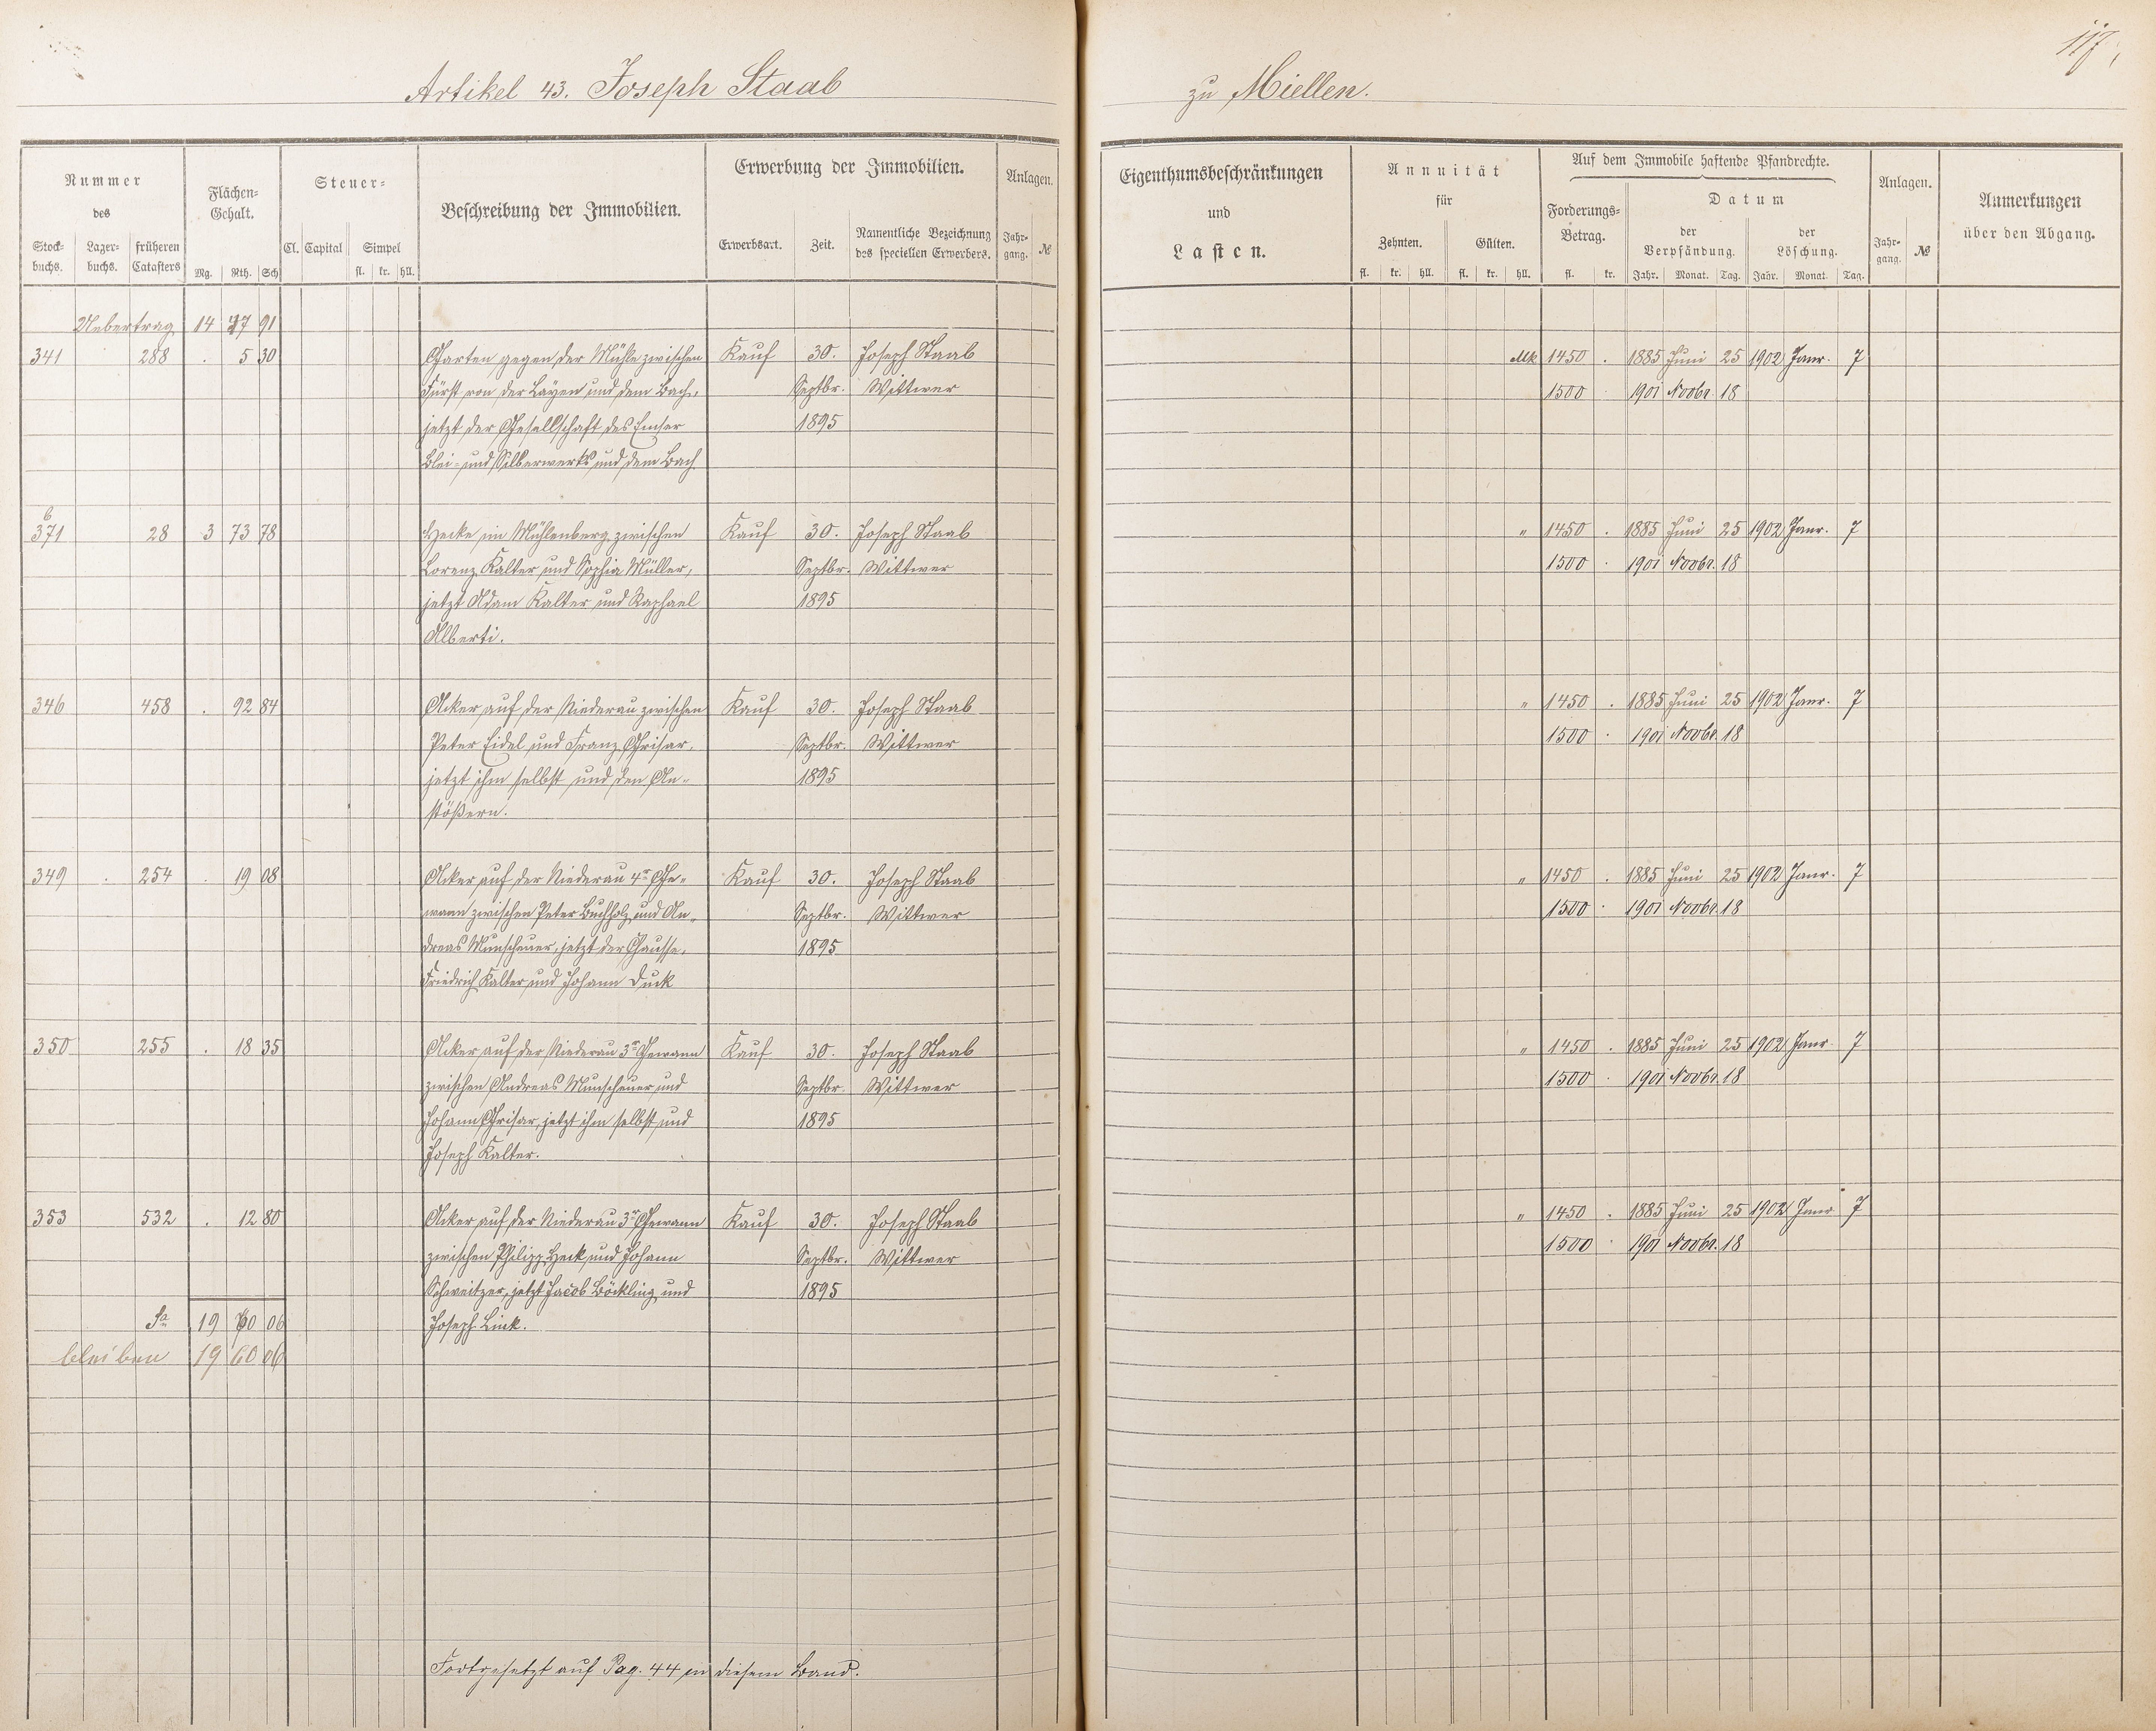 117,
Artikel 43. Joseph Staab zu Miellen.
Nummer des
Stock-buchs. Lager-buchs. früheren Catasters
Flächen-Gehalt.
Mg. Rth. Sch
Steuer-
Cl. Capital Simpel
fl. kr. hll.
Beschreibung der Immobilien.
Erwerbung der Immobilien.
Erwerbsart. Zeit. Namentliche Bezeichnung des speciellen Erwerbers.
Anlagen.
Jahr-gang. №
Eigenthumsbeschränkungen
und
Lasten.
Annuität
für
Zehnten. Gülten.
fl. kr. hll. fl. kr. hll.
Auf dem Immobile haftende Pfandrechte.
Forderungs-Betrag.
fl. kr.
Datum
der Verpfändung. der Löschung.
Jahr. Monat. Tag. Jahr. Monat. Tag.
Anlagen.
Jahr-gang. №
Anmerkungen
über den Abgang.
Uebertrag 14 47 91
341 288 . 5 30 Garten gegen der Mühle zwischen Kauf 30. Joseph Staab Mk 1450 . 1885 Juni 25 1902 Janr. 7
Fürst von der Layen und dem Bach, Septbr. Wittwer 1500 1901 Novbr. 18
jetzt der Gesellschaft des Emser 1895
Blei- und Silberwerks und dem Bach
6
371 28 3 73 78 Hecke im Mühlenberg zwischen Kauf 30. Joseph Staab " 1450 . 1885 Juni 25 1902 Janr. 7
Lorenz Kalter und Sophia Müller, Septbr. Wittwer 1500 . 1901 Novbr. 18
jetzt Adam Kalter und Raphael 1895
Alberti.
346 458 . 92 84 Acker auf der Niederau zwischen Kauf 30. Joseph Staab " 1450 . 1885 Juni 25 1902 Janr. 7
Peter Eidel und Franz Grisar, Septbr. Wittwer 1500 . 1901 Novbr. 18
jetzt ihm selbst und den An- 1895
stößern.
349 . 254 . 19 08 Acker auf der Niederau 4r Ge- Kauf 30. Joseph Staab " 1450 . 1885 Juni 25 1902 Janr. 7
wann zwischen Peter Buchholz und An- Septbr. Wittwer 1500 . 1901 Novbr. 18
dreas Munscheuer, jetzt der Chausse, 1895
Friedrich Kalter und Johann Duck
350 255 . 18 35 Acker auf der Niederau 3r Gewann Kauf 30. Joseph Staab " 1450 . 1885 Juni 25 1902 Janr. 7
zwischen Andreas Munscheuer und Septbr. Wittwer 1500 . 1901 Novbr. 18
Johann Grisar, jetzt ihm selbst und 1895
Joseph Kalter.
353 532 . 12 80 Acker auf der Niederau 3r Gewann Kauf 30. Joseph Staab " 1450 . 1885 Juni 25 1902 Janr 7
zwischen Philipp Heck und Johann Septbr. Wittwer 1500 . 1901 Novbr. 18
Schweitzer, jetzt Jacob Böckling und 1895
Sa 19 70 06 Joseph Link.
bleiben 19 60 06
Fortgesetzt auf Pag. 44 in diesem Band.